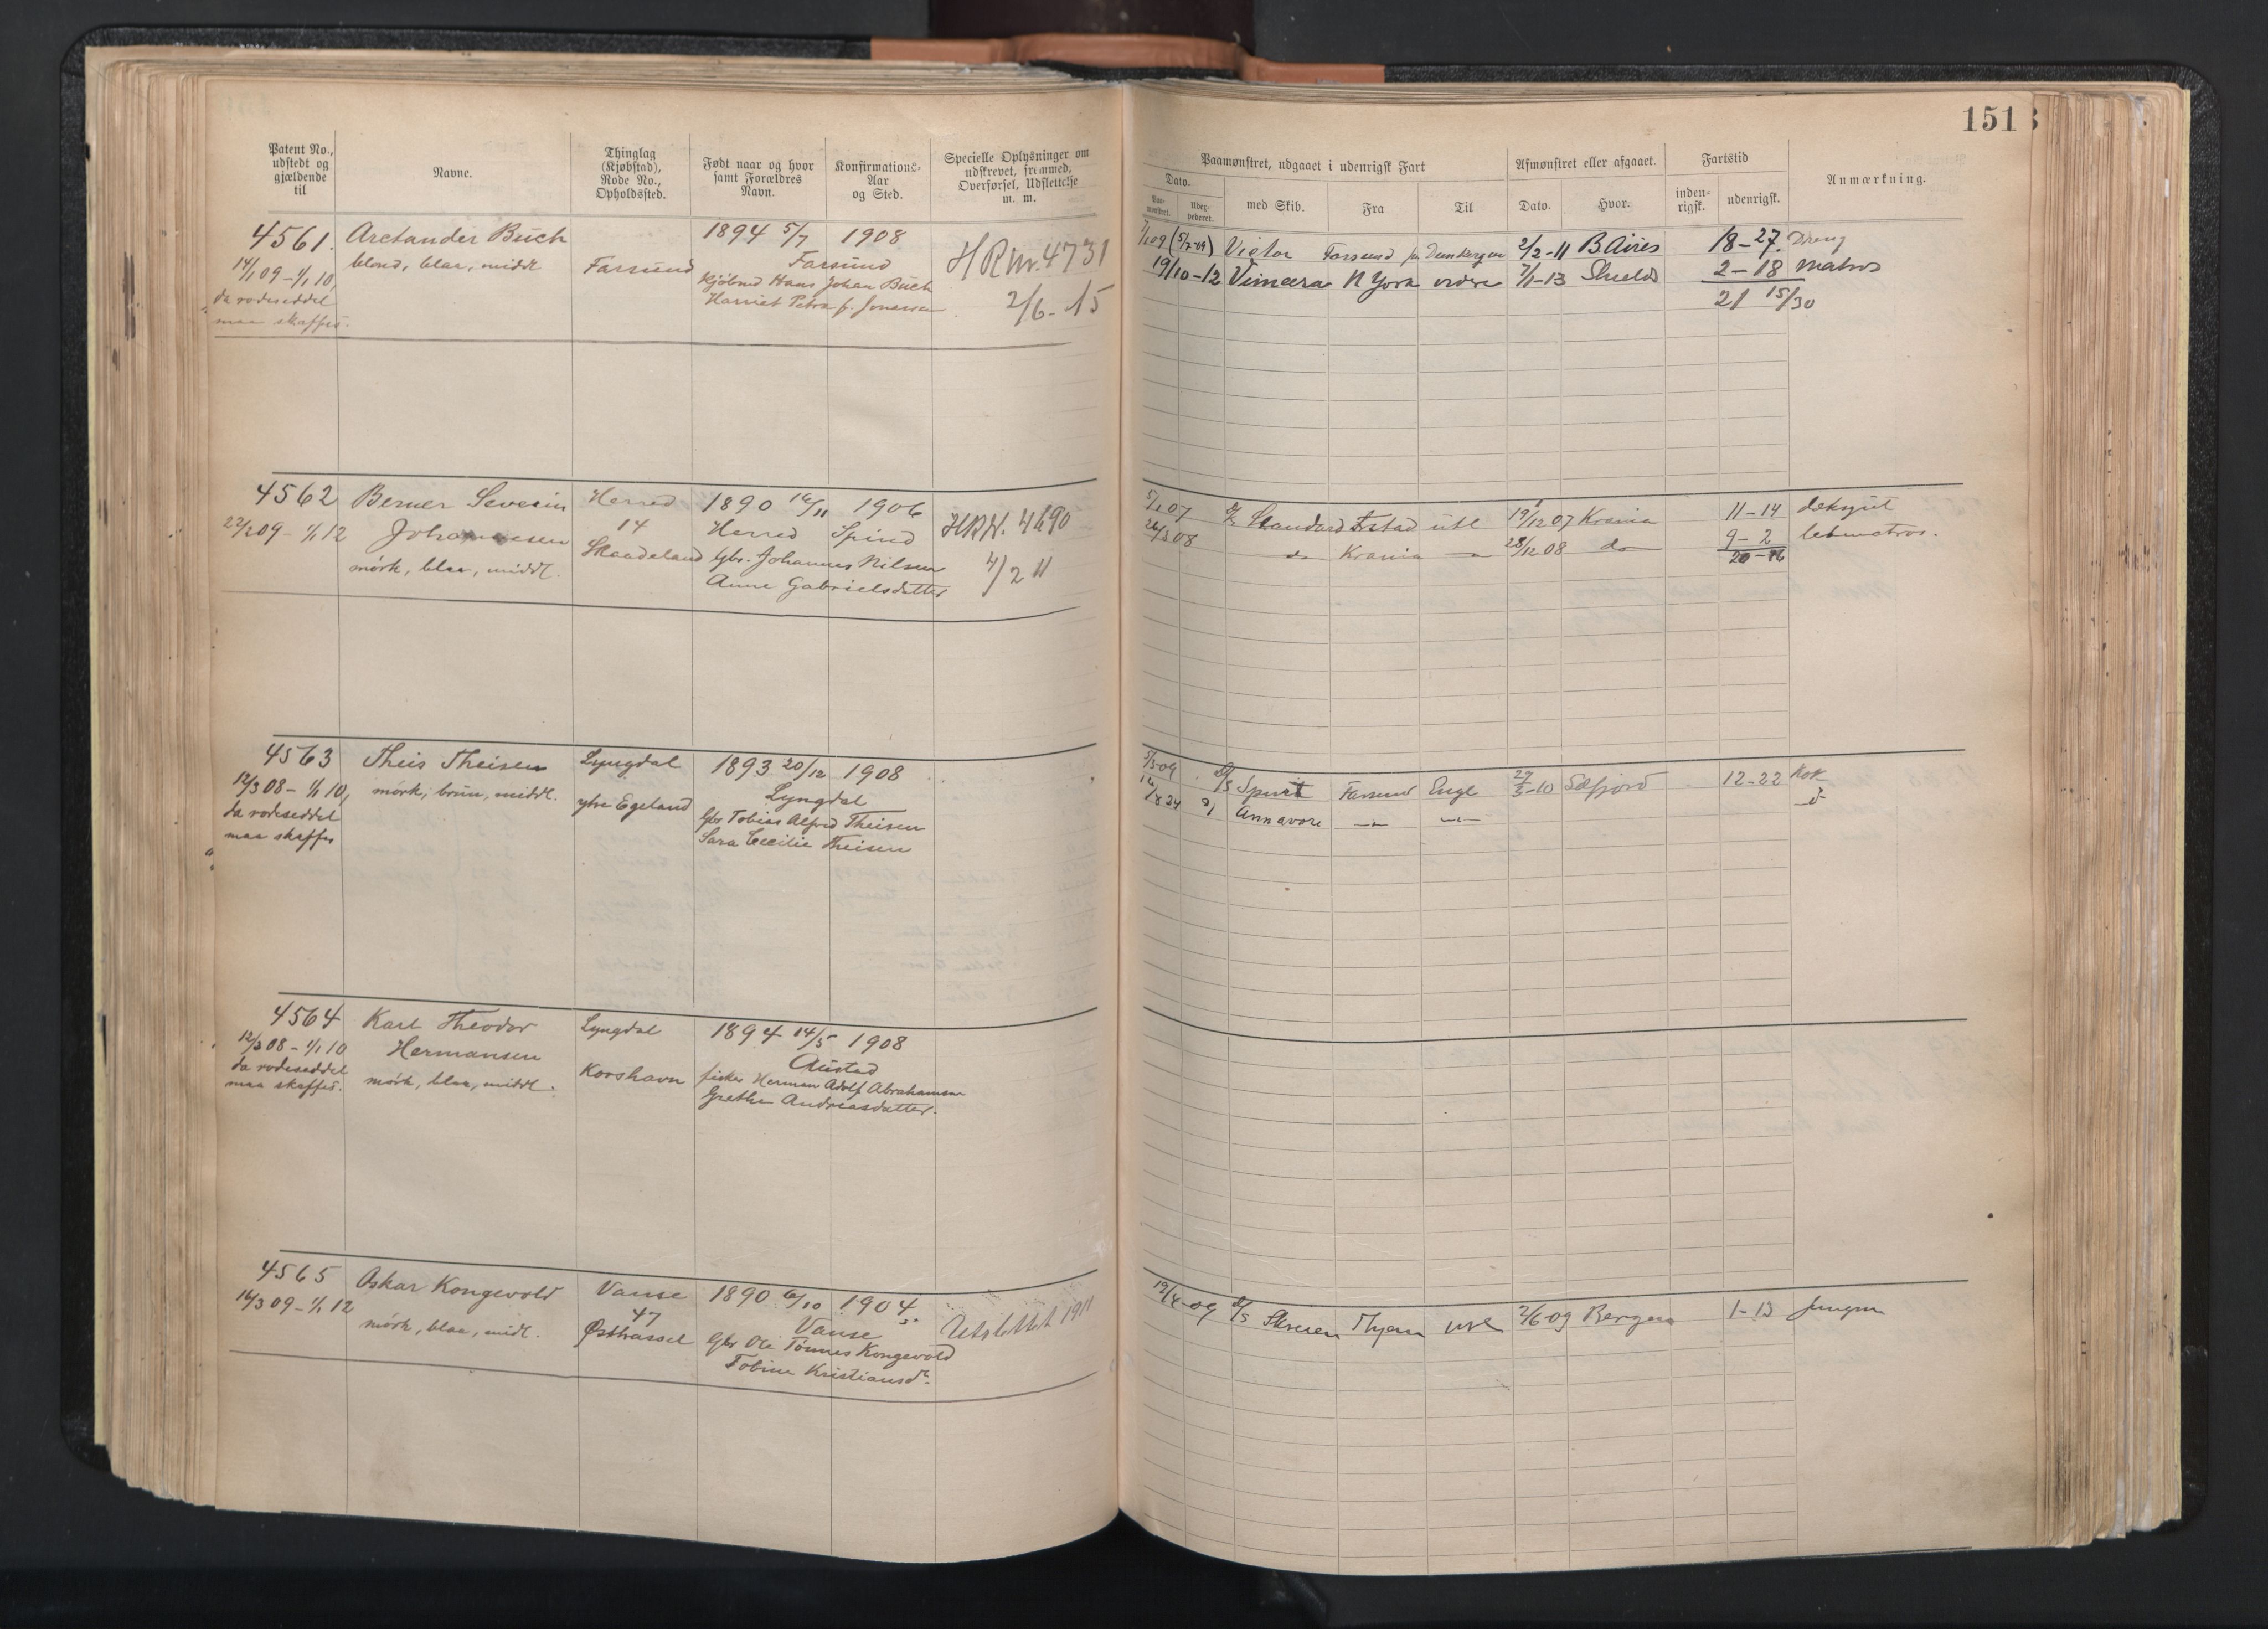 151
Patent No., udstedt og gjældende til
Navne.
Thinglag (Kjøbstad), Rode No., Opholdssted.
Født naar og hvor samt Forældres Navn.
Konfirmations-Aar og Sted.
Specielle Oplysninger om udskrevet, frømmed, Overførsel, Udslettelse m. m.
Paamønstret, udgaaet i udenrigsk Fart
Afmønstret eller afgaaet.
Fartstid
Anmærkning.
Dato.
Paa-mønstret.
Uder-pederet.
med Skib.
Fra
Til
Dato.
Hvor.
inden-rigsk.
udenrigsk.
4561. Aretander Buch 1894 5/7 1908
14/1 09 - 1/1 10, blond, blaa, middl Farsund Farsund HRNr. 4731
da rodeseddel Kjøbmd Hans Johan Buch 2/6-15
maa skaffes. Harriet Petra f. Jonassen
7/1 09 (5/7-09) Victor Farsund Dunkerque 2/2-11 B Aires 18-27. Dreng
19/10-12 Vimeira N York ordre 7/1-13 Shields 2-18 Matros
21 15/30
4562 Berner Severin Herred 1890 14/11 1906
22/2 09 - 1/1 12 Johannesen 14 Herred Spind HRN. 4690
mørk, blaa, middl. Skaadeland Gbr. Johannes Nilsen 4/2 11
Anne Gabrielsdatter
5/1 07 Standard Fstad utl 19/12 07 Krania 11-14 dekgut
26/3 08 do Krania 28/12 08 do 9-2 letmatros.
20-16
4563 Theis Theisen Lyngdal 1893 20/12 1908
12/3 08 - 1/1 10, mørk, brun, middl. ytre Egeland Lyngdal
da rodeseddel Gbr Tobias Alfred Theisen
maa skaffes Sara Cecilie Theisen
5/3 09 D/S Spurt Farsund Engl 29/3-10 Sæfjord 12-22 Kok
Annavore
4564 Karl Theodor Lyngdal 1894 14/5 1908
12/3 08 - 1/1 10 Hermansen Austad
da rodeseddel mørk, blaa, middl. Korshavn fisker Herman Adolf Abrahamsen
maa skaffes. Grethe Andreasdatter.
4565 Oskar Kongevold Vanse 1890 6/10 1904
16/3 09 - 1/1 12 mørk, blaa, midl. 47 Vanse Utslettet 1911
Østhassel Gbr Ole Tønnes Kongevold
Tobine Kristiansdr.
19/4-09 D/S Skreien Thjem utl 2/6-09 Bergen 1-13 Jungm